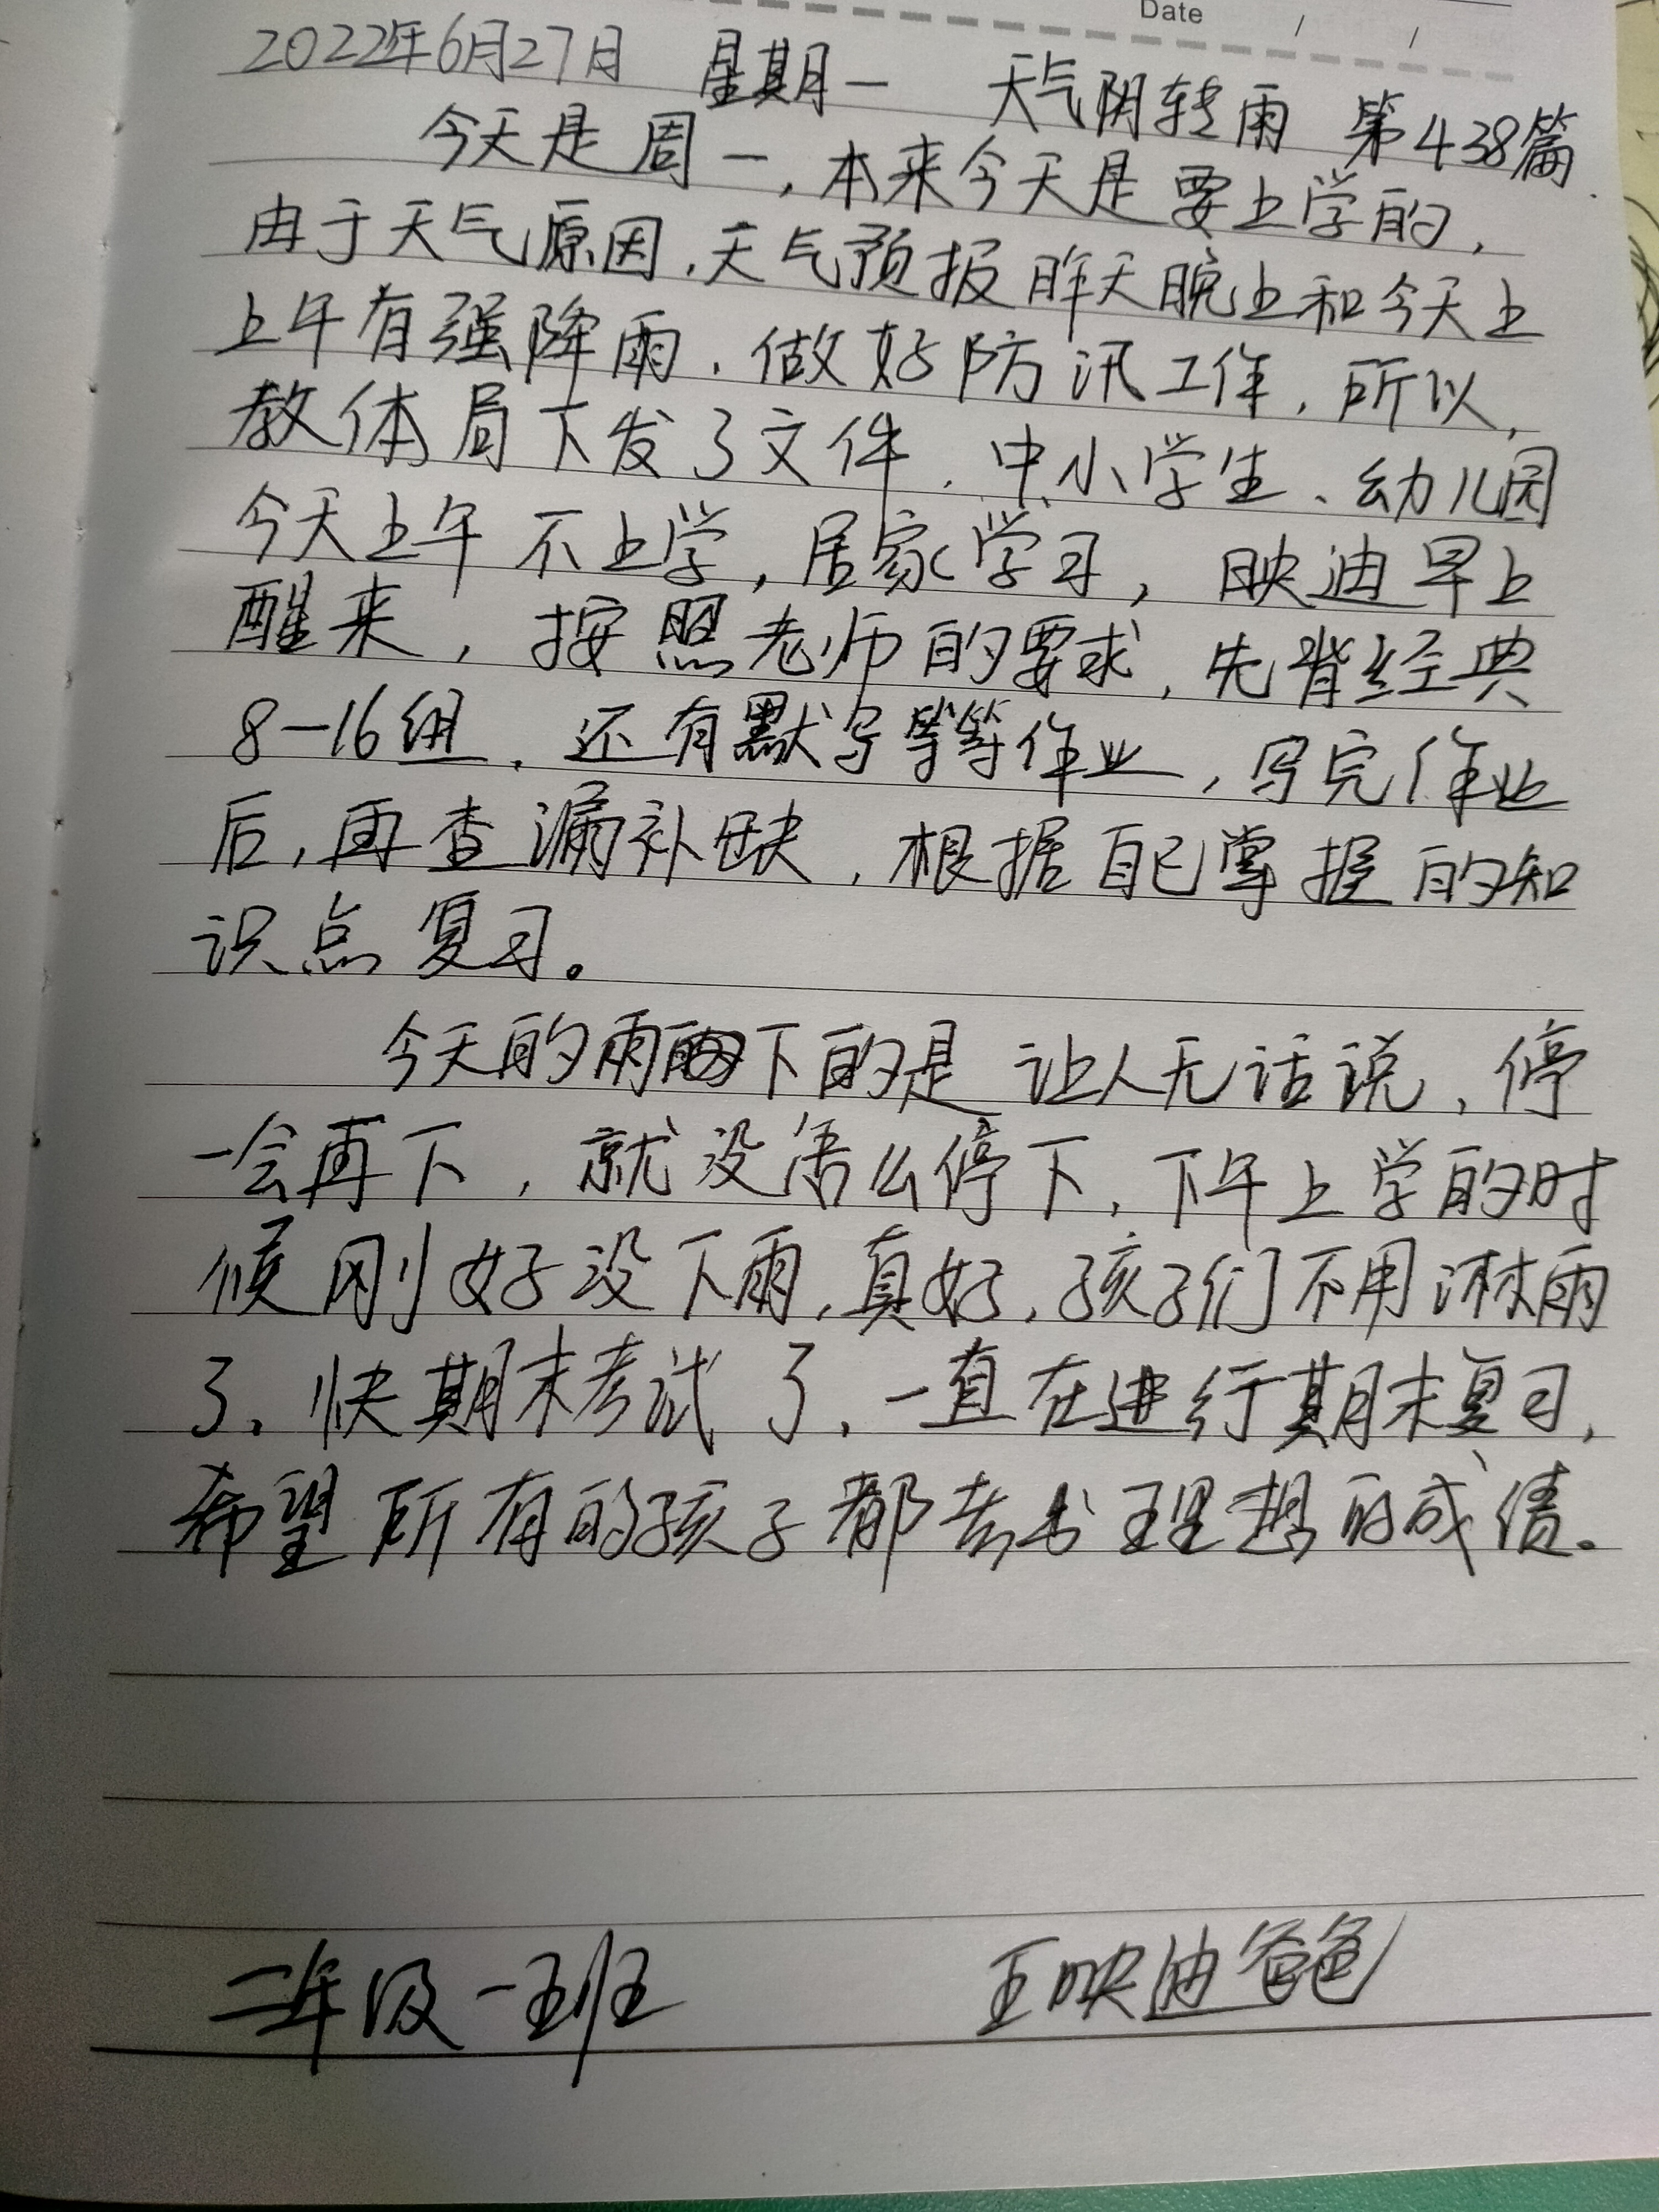 Date / /
2022年6月27日 星期一 天气阴转雨 第438篇
今天是周一,本来今天是要上学的,
由于天气原因,天气预报昨天晚上和今天上
上午有强降雨,做好防汛工作,所以,
教体局下发了文件,中小学生、幼儿园
今天上午不上学,居家学习,映迪早上
醒来,按照老师的要求,先背经典
8-16组,还有默写等等作业,写完作业
后,再查漏补缺,根据自己掌握的知
识点复习。
今天的雨下的是让人无话说,停
一会再下,就没怎么停下,下午上学的时
候刚好没下雨,真好,孩子们不用淋雨
了,快期末考试了,一直在进行期末复习,
希望所有的孩子都考出理想的成绩。
二年级一班 王映迪爸爸